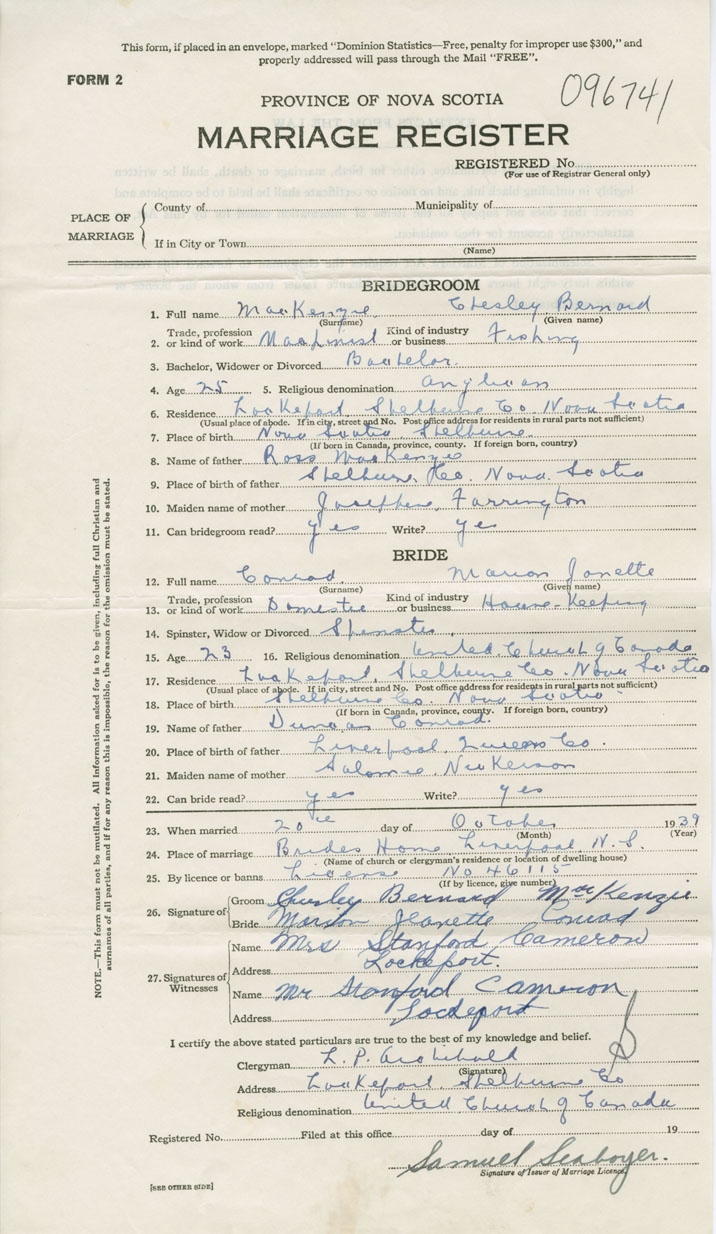 This form, if placed in an envelope, marked "Dominion Statistics—Free, penalty for improper use $300," and
properly addressed will pass through the Mail "FREE".
FORM 2
096741
PROVINCE OF NOVA SCOTIA
MARRIAGE REGISTER
REGISTERED No.
(For use of Registrar General only)
PLACE OF MARRIAGE
County of Municipality of
If in City or Town
(Name)
BRIDEGROOM
1. Full name MacKenzie Chesley Bernard
(Surname) (Given name)
2. Trade, profession or kind of work Machinist Kind of industry or business Fishing
3. Bachelor, Widower or Divorced Bachelor.
4. Age 25 5. Religious denomination Anglican
6. Residence Lockeport, Shelburne Co. Nova Scotia
(Usual place of abode. If in city, street and No. Post office address for residents in rural parts not sufficient)
7. Place of birth Nova Scotia, Shelburne.
(If born in Canada, province, county. If foreign born, country)
8. Name of father Ross MacKenzie
9. Place of birth of father Shelburne Co. Nova Scotia
10. Maiden name of mother Josephine Farrington
11. Can bridegroom read? yes Write? yes
BRIDE
12. Full name Conrad. Marion Janette
(Surname) (Given name)
13. Trade, profession or kind of work Domestic Kind of industry or business House-Keeping
14. Spinster, Widow or Divorced Spinster.
15. Age 23 16. Religious denomination United Church of Canada
17. Residence Lockeport, Shelburne Co. Nova Scotia
(Usual place of abode. If in city, street and No. Post office address for residents in rural parts not sufficient)
18. Place of birth Shelburne Co. Nova Scotia
(If born in Canada, province, county. If foreign born, country)
19. Name of father Duncan Conrad.
20. Place of birth of father Liverpool, Queens Co.
21. Maiden name of mother Salome Nickerson
22. Can bride read? yes Write? yes
23. When married 20th day of October 1939
(Month) (Year)
24. Place of marriage Brides Home, Liverpool, N.S.
(Name of church or clergyman's residence or location of dwelling house)
25. By licence or banns License No 46115
(If by licence, give number)
26. Signature of
Groom Chesley Bernard MacKenzie
Bride Marion Jeanette Conrad
27. Signatures of Witnesses
Name Mrs Stanford Cameron
Address Lockeport.
Name Mr Stanford Cameron
Address Lockeport
I certify the above stated particulars are true to the best of my knowledge and belief.
Clergyman L. P. Archibald
(Signature)
Address Lockeport, Shelburne Co
Religious denomination United Church of Canada
Registered No. Filed at this office day of 19
Samuel Seaboyer.
Signature of Issuer of Marriage Licence.
[SEE OTHER SIDE]
NOTE.—This form must not be mutilated. All information asked for is to be given, including full Christian and
surnames of all parties, and if for any reason this is impossible, the reason for the omission must be stated.